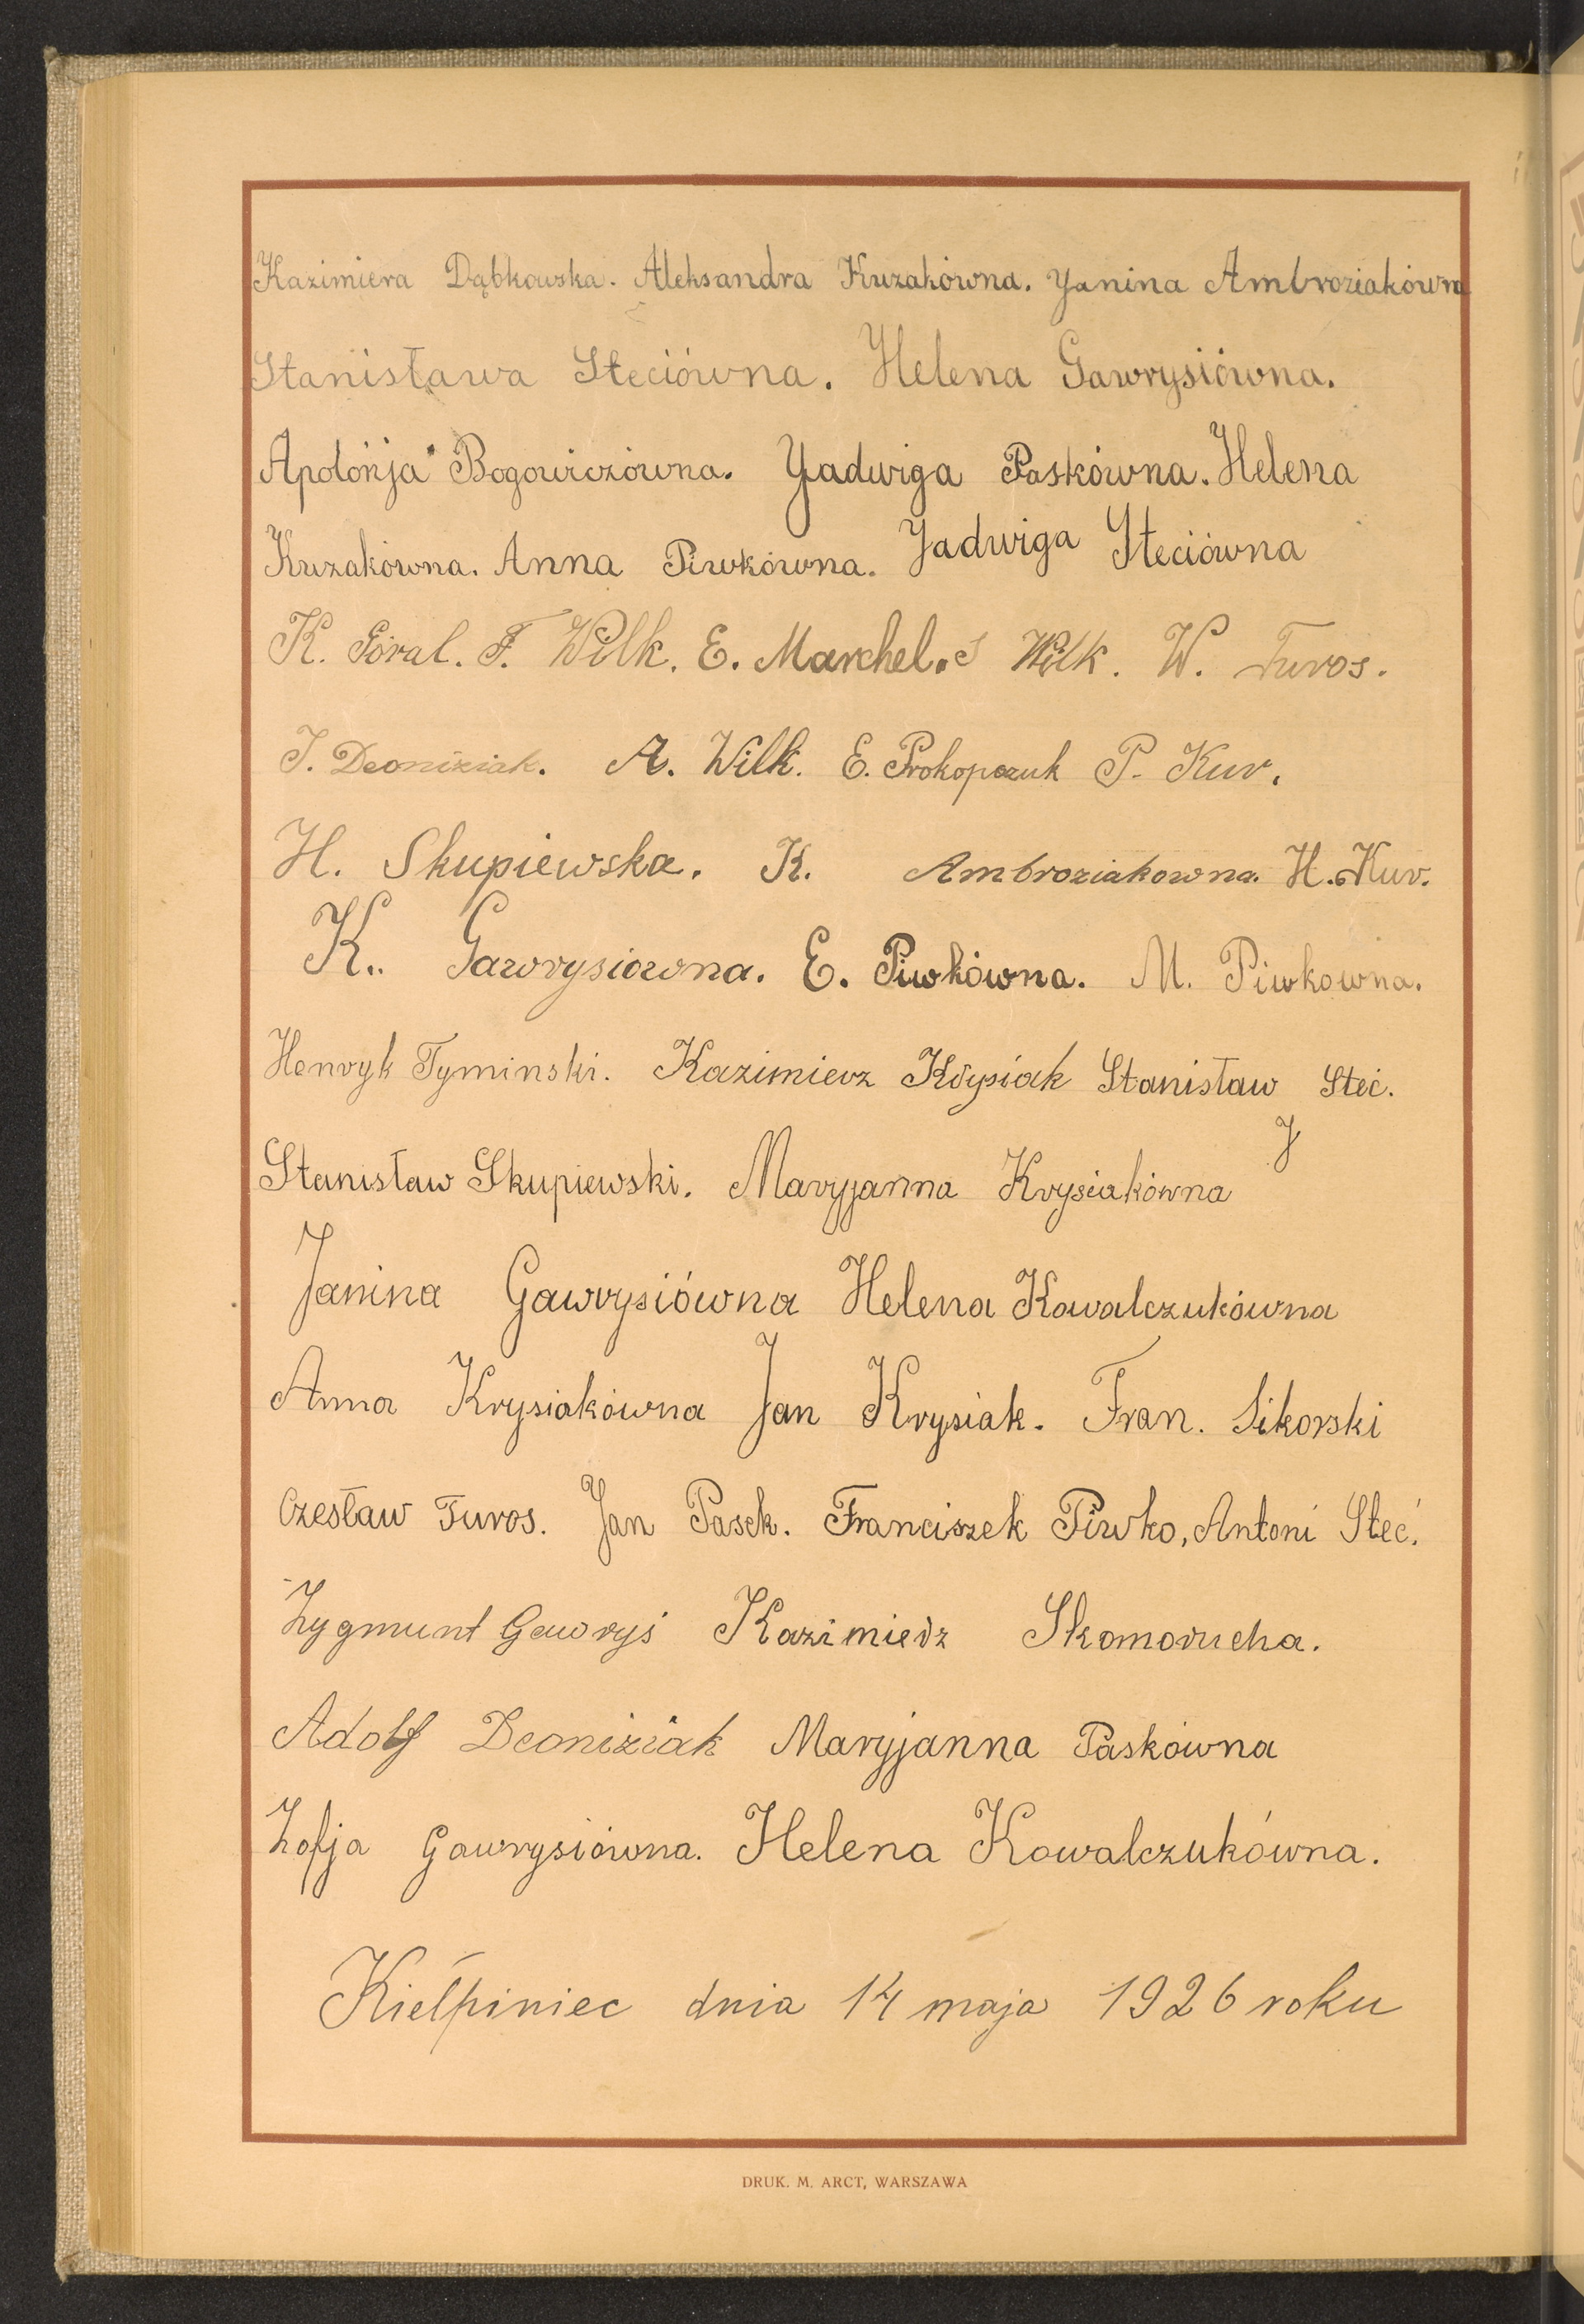 Kazimiera Dąbkowska. Aleksandra Kuzakówna. Janina Ambroziakówna
Stanisława Steciówna. Helena Gawrysiówna.
Apolónja Bogowiczówna. Jadwiga Paskówna. Helena
Kuzakówna. Anna Piwkówna. Jadwiga Steciówna
K. Góral. F. Wilk. E. Marchel. S Wilk. W. Turos.
J. Deoniziak. A. Wilk. E. Prokopczuk P. Kur.
H. Skupiewska. K. Ambroziakowna. H. Kur.
K.. Gawrysiowna. E. Piwkówna. M. Piwkowna.
Henryk Tyminski. Kazimierz Krysiak Stanisław Steć.
J
Stanisław Skupiewski. Maryjanna Krysiakówna
Janina Gawrysiówna Helena Kowalczukówna
Anna Krysiakówna Jan Krysiak. Fran. Sikorski
Czesław Turos. Jan Pasek. Franciszek Piwko, Antoni Steć.
Zygmunt Gawryś Kazimierz Skomorucha.
Adolf Deoniziak Maryjanna Paskówna
Zofja Gawrysiówna. Helena Kowalczukówna.
Kiełpiniec dnia 14 maja 1926 roku
DRUK. M. ARCT, WARSZAWA